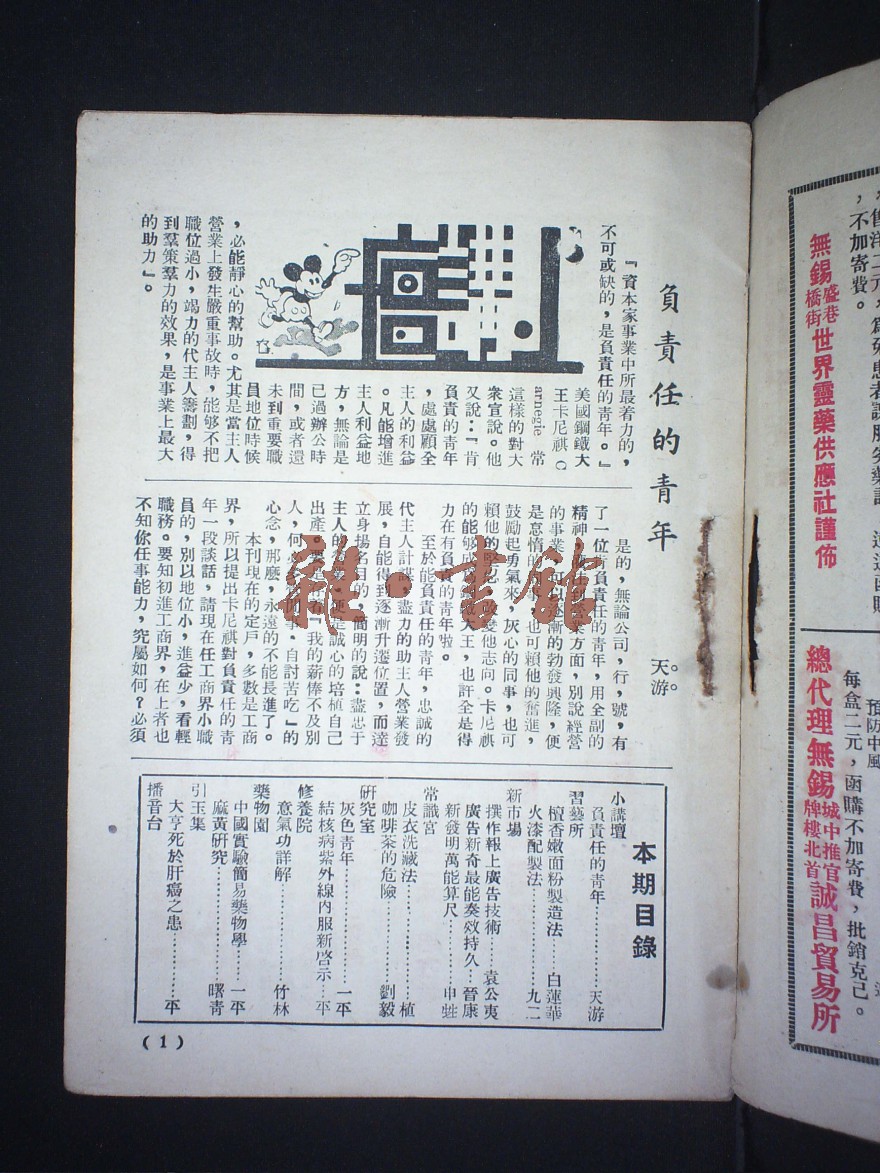 負責任的青年
天游
『資本家事業中所最着力的，
不可或缺的，是負責任的青年。』
美國鋼鐵大
王卡尼祺 C
arnegie 常
這樣的對大
衆宣說。他
又說：『肯
負責的青年
，處處顧全
主人的利益
。凡能增進
主人利益地
方，無論是
已過辦公時
間，或者還
未到重要職
員地位時候
，必能靜心的幫助。尤其是當主人
營業上發生嚴重事故時，能够不把
職位過小，竭力的代主人籌劃，得
到羣策羣力的效果，是事業上最大
的助力』。
是的，無論公司，行，號，有
了一位肯負責任的青年，用全副的
精神，
營業方面，別說經營
的事業
漸的勃發興隆，便
是怠惰的
也可賴他的奮進，
鼓勵起勇氣來，灰心的同事，也可
賴他的
改變他志向。卡尼祺
的能够成
大王，也許全是得
力在有負
的青年啦。
至於能負責任的青年，忠誠的
代主人計謀，盡力的助主人營業發
展，自能得到逐漸升遷位置，而達
立身揚名目的，簡明的說：盡忠于
主人的
便是誠心的培植自己
出產。要是存着『我的薪俸不及別
人，何必
事，自討苦吃』的
心念，那麼，永遠的不能長進了。
本刊現在的定戶，多數是工商
界，所以提出卡尼祺對負責任的青
年一段談話，請現在任工商界小職
員的，別以地位小，進益少，看輕
職務。要知初進工商界，在上者也
不知你任事能力，究屬如何？必須
本期目錄
小講壇
負責任的青年…………天游
習藝所
檀香嫩面粉製造法……白蓮華
火漆配製法……………九二
新市場
撰作報上廣告技術……袁公夷
廣告新奇最能奏效持久…晉康
新發明萬能算尺………申甡
常識宮
皮衣洗藏法……………植
咖啡茶的危險…………劉毅
研究室
灰色青年………………一平
結核病紫外線內服新啓示…平
修養院
意氣功詳解……………竹林
藥物園
中國實驗簡易藥物學…一平
麻黃研究………………曙青
引玉集
大亨死於肝癌之患……平
播音台
(1)
雜·書館
，不加寄費。
無錫盛巷橋街世界靈藥供應社謹佈
預防中風
每盒二元，函購不加寄費，批銷克己。
總代理無錫城中推官牌樓北首誠昌貿易所